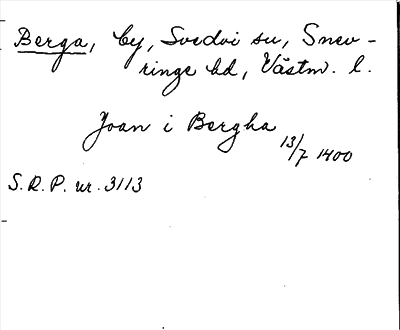 Berga, by, Svedvi sn, Snev-
ringe hd, Västm. l.
Joan i Bergha
13/7 1400
S.R.P. nr. 3113